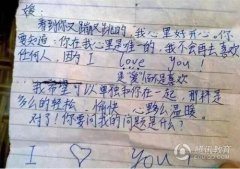 看到你又蹦又跳的，我心里好开心。你
要知道：你在我心里是唯一的，我不会再去喜欢
任何人，因为 I love you！
是爱而不是喜欢
我希望可以单独和你在一起，那样是
多么的轻松、愉快、心里多么温暖
对了！你要问我的问题是什么？
I ♡ You
腾讯教育